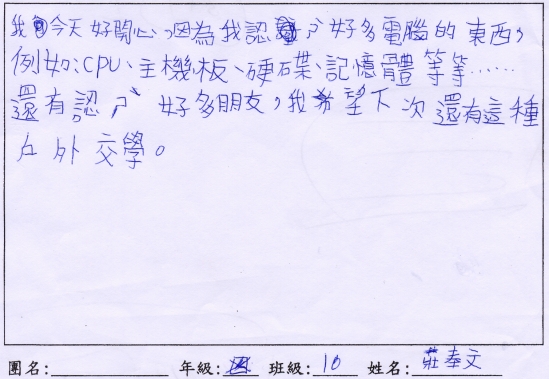 我今天好開心,因為我認ㄕˋ好多電腦的東西,
例如:CPU、主機板、硬碟、記憶體等等……
還有認ㄕˋ好多朋友,我希望下次還有這種
戶外交學。
團名: 年級:四 班級:10 姓名:莊奉文